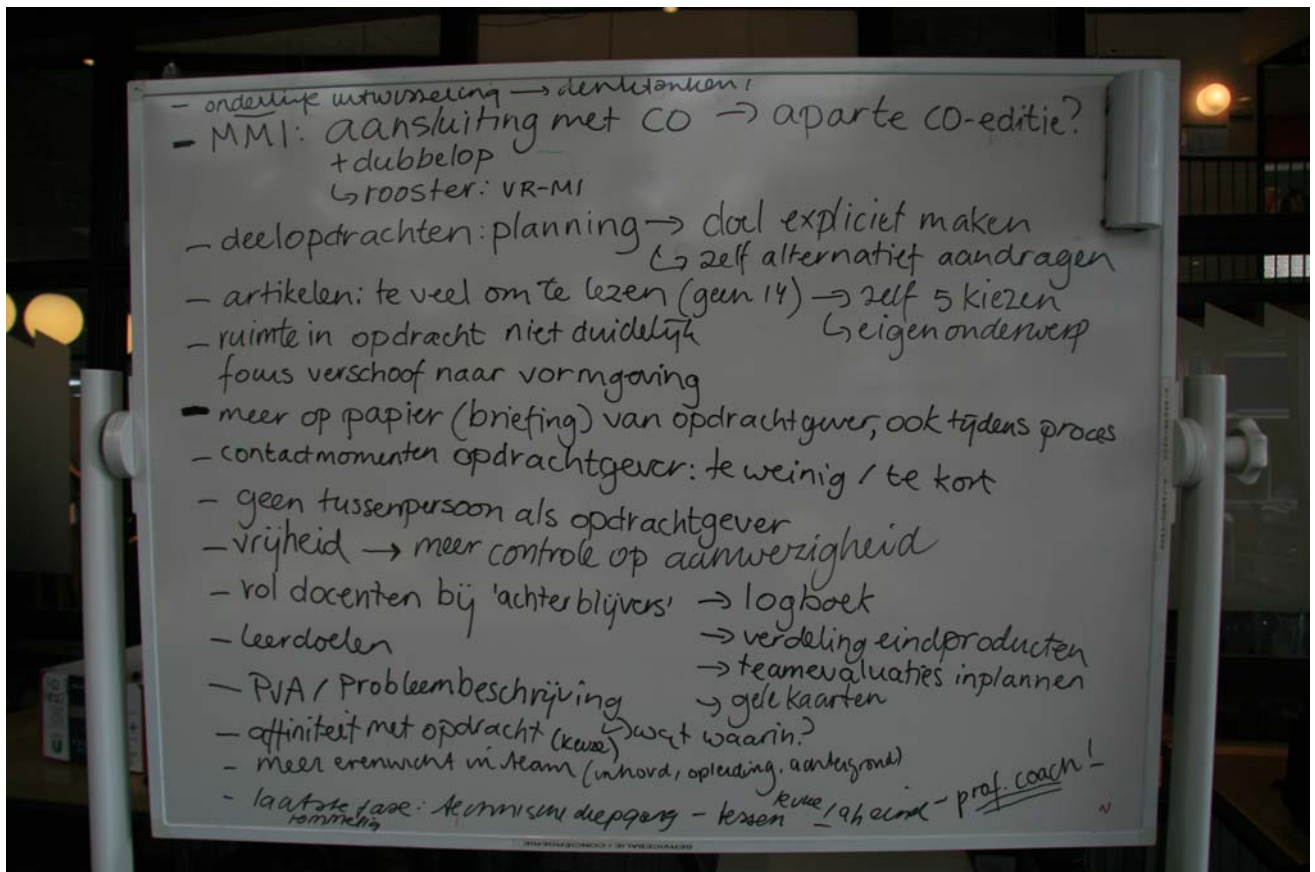 - onderlinge uitwisseling → denktanken!
- MMI: aansluiting met CO → aparte CO-editie?
+ dubbelop
↳ rooster: VR-MI
- deelopdrachten: planning → doel expliciet maken
↳ zelf alternatief aandragen
- artikelen: te veel om te lezen (geen 14) → zelf 5 kiezen
↳ eigen onderwerp
- ruimte in opdracht niet duidelijk
focus verschoof naar vormgeving
- meer op papier (briefing) van opdrachtgever, ook tijdens proces
- contactmomenten opdrachtgever: te weinig / te kort
- geen tussenpersoon als opdrachtgever
- vrijheid → meer controle op aanwezigheid
- rol docenten bij 'achterblijvers' → logboek
- leerdoelen → verdeling eindproducten
→ teamevaluaties inplannen
- PVA / Probleembeschrijving → gele kaarten
↳ wat waarin?
- affiniteit met opdracht (keuze)
- meer evenwicht in team (inhoud, opleiding, achtergrond)
- laatste fase: technische diepgang - lessen - prof. coach!
rommelig
SERVICEBALIE / CONCIERGERIE